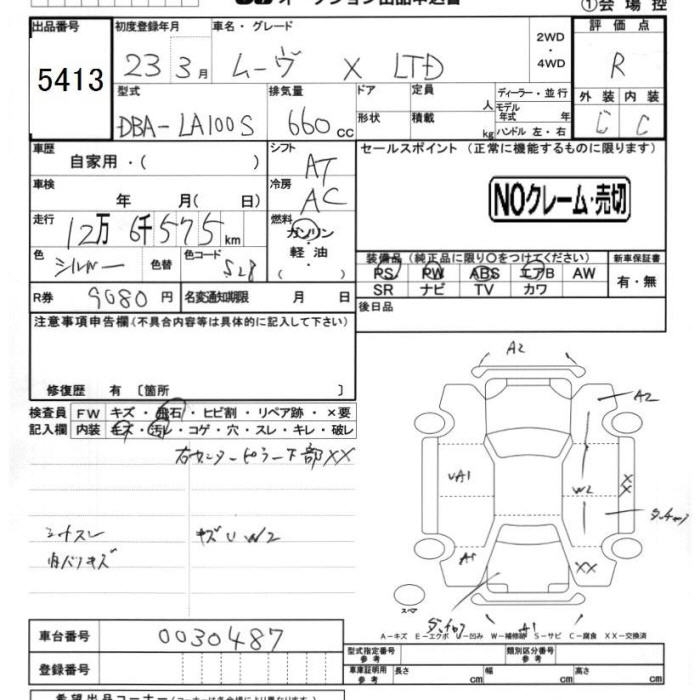 オークション出品申込書
①会場控
出品番号 初度登録年月 車名・グレード 2WD・4WD 評価点
5413 23 3月 ムーヴ X LTD R
型式 排気量 ドア 定員 人 ディーラー・並行 外装 内装
DBA-LA100S 660cc 形状 積載 kg モデル年式 年 ハンドル 左・右 C C
車歴 自家用・( ) シフト AT セールスポイント (正常に機能するものに限ります)
車検 年 月( 日) 冷房 AC
NOクレーム・売切
走行 12万 6千575km 燃料 ガソリン・軽油・( )
色 シルバー 色替 色コード S28
装備品 (純正品に限り○をつけてください) 新車保証書
PS PW ABS エアB AW 有・無
SR ナビ TV カワ
R券 9080円 名変通知期限 月 日
後日品
注意事項申告欄(不具合内容等は具体的に記入して下さい)
修復歴 有 〔箇所 〕
検査員 FW キズ・飛石・ヒビ割・リペア跡・×要
記入欄 内装 キズ・汚レ・コゲ・穴・スレ・キレ・破レ
右センターピラー下部XX
シートスレ キズU W2
内バンキズ
A2
A2
UA1 W2 XX
タッチアップ
A1 XX
スペア
A1
A-キズ E-エクボ U-凹み W-補修跡 S-サビ C-腐食 XX-交換済
車台番号 0030487
型式指定番号 参考 類別区分番号 参考
登録番号
車庫証明用 参考 長さ cm 幅 cm 高さ cm
希望出品コーナー